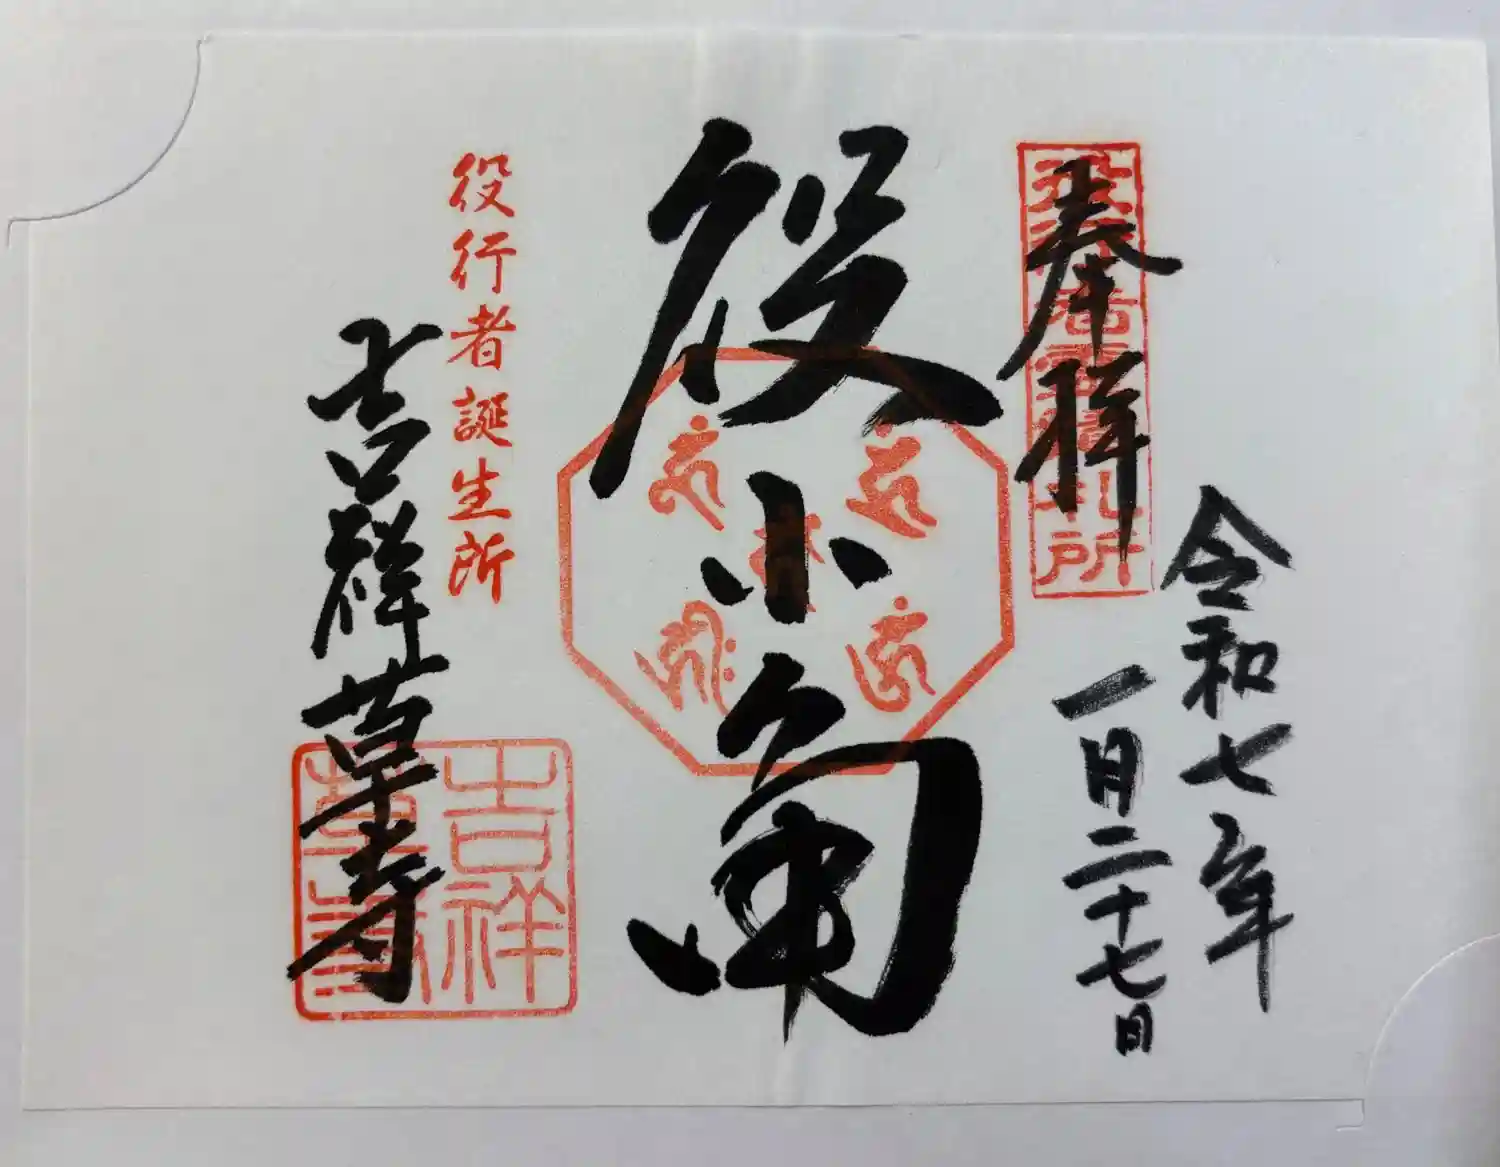 奉拝
役行者霊蹟札所
令和七年
一月二十七日
役小角
役行者誕生所
吉祥草寺
吉祥
草寺